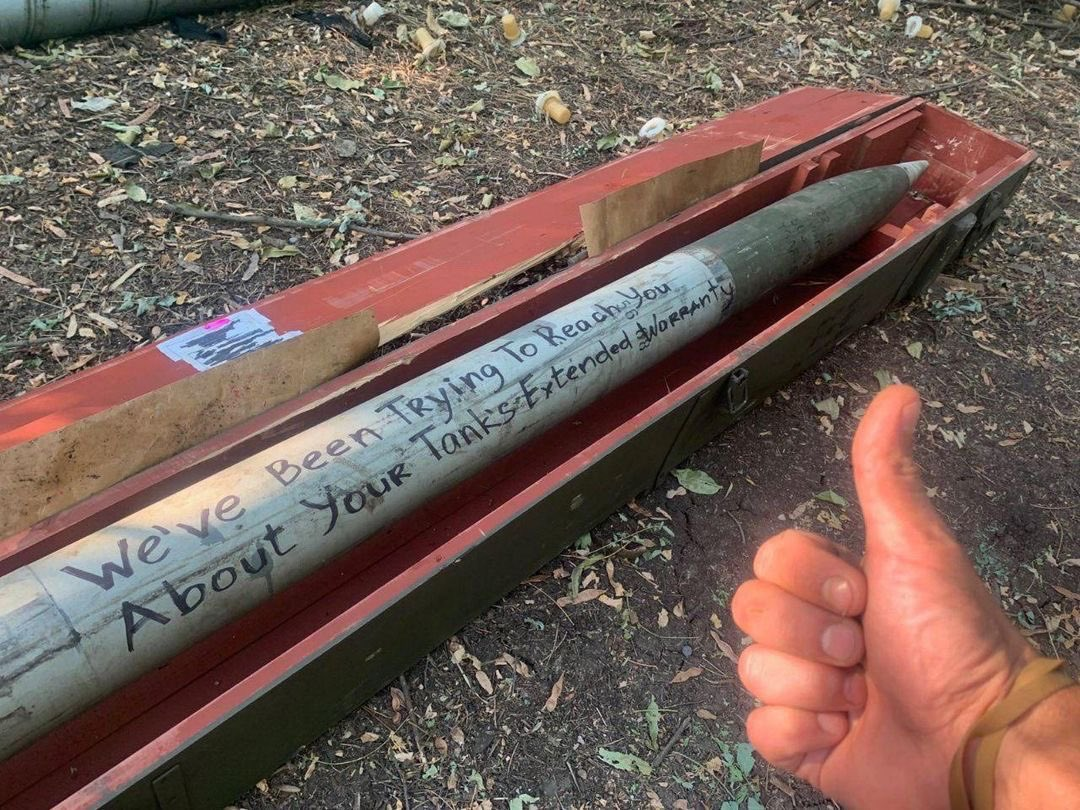 We've Been Trying To Reach You
About Your Tank's Extended Warranty